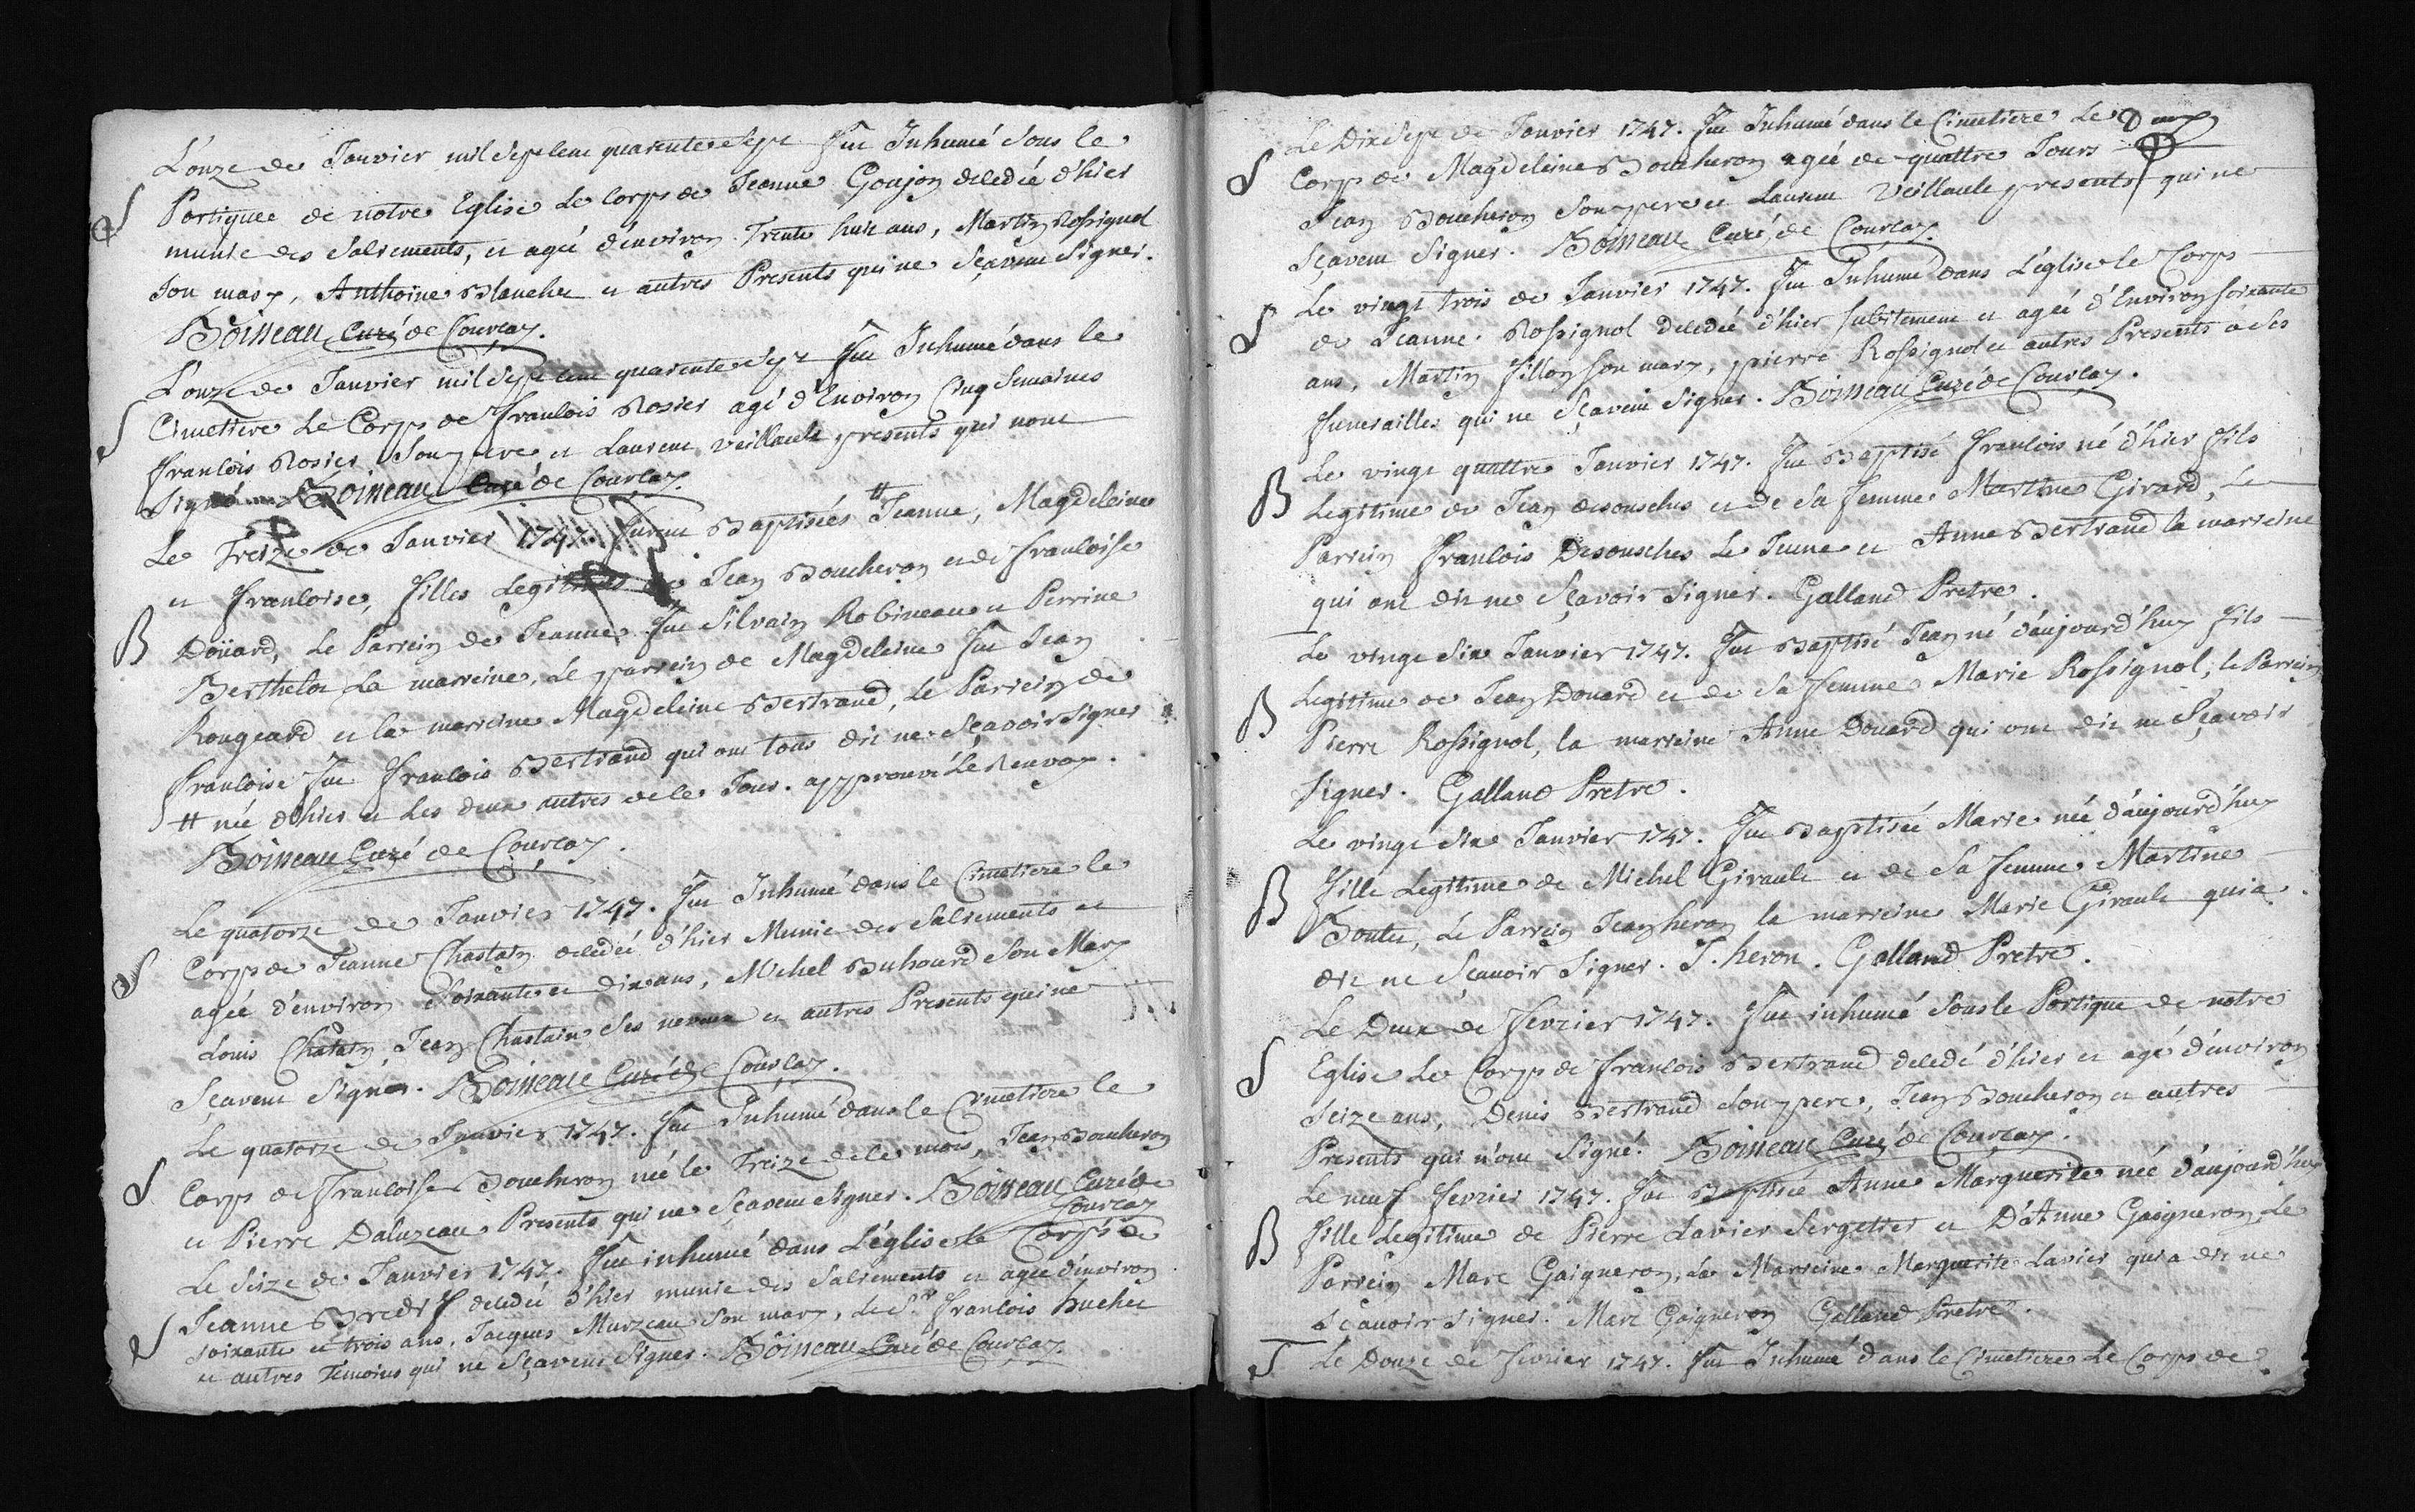 L'onze de Janvier mil sept cent quarente sept fut Inhumé sous le
S Portiquee de notre Eglise Le Corps de Jeanne Goujon decedée d'hier
munie des Sacrements, et agée d'environ Trente huit ans, Martin Rossignol
son mary, Anthoine Blanchet et autres Presents qui ne sçavent signer.
Boisseau Curé de Courcay.
L'onze de Janvier mil sept cent quarente sept fut Inhumé dans le
S Cimetiere Le Corps de francois Rosier agé d'Environ Cinq semaines
francois Rosier son pere et Laurent veillault presents qui n'ont
signé Boisseau Curé de Courcay.
Le Treize de Janvier 1747. furent Baptisées # Jeanne, Magdeleine
et francoise, filles Legitimes de Jean Boucheron et de francoise
B Doüard, Le Parrein de Jeanne fut Silvain Robineau et Perrine
Berthelot La marreine, Le parrein de Magdeleine fut Jean
Rougeard et la marreine Magdeleine Bertrand, Le Parrein de
francoise fut francois Bertrand qui ont tous dit ne sçavoir signer
# née d'hier et Les deux autres de ce Jour. approuvé Le Renvoy.
Boisseau Curé de Courcay.
Le quatorze de Janvier 1747. fut Inhumé dans le Cimetiere le
S Corps de Jeanne Chastain decedée d'hier Munie des Sacrements et
agée d'environ Soixante et dix ans, Michel Buhourd son Mary
Louis Chatain, Jean Chastain, ses neveux et autres Presents qui ne
sçavent signer. Boisseau Curé de Courcay.
Le quatorze de Janvier 1747. fut Inhumé dans le Cimetiere le
S Corps de francoise Boucheron née le Treize de ce mois, Jean Boucheron
et Pierre Daluzeau Presents qui ne sçavent signer. Boisseau Curé de
Courcay
Le seize de Janvier 1747. fut inhumé dans L'église le Corps de
Jeanne Bredif decedée d'hier munie des Sacrements et agée d'environ
S soixante et trois ans, Jacques Murzeau son mary, le Sr. francois huchet
et autres Temoins qui ne sçavent signer. Boisseau Curé de Courcay
Le Dix sept de Janvier 1747. fut Inhumé dans le Cimetiere Le
S Corps de Magdeleine Boucheron agée de quattre Jours
Jean Boucheron son pere et Laurent Veillault presents qui ne
sçavent signer. Boisseau Curé de Courcay.
Le vingt trois de Janvier 1747. fut Inhumé dans L'église le Corps
S de Jeanne Rossignol decedée d'hier subitement et agée d'Environ soixante
ans, Martin fillon son mary, pierre Rossignol et autres Presents à ses
funerailles qui ne sçavent signer. Boisseau Curé de Courcay.
Le vingt quattre Janvier 1747. fut Baptisé francois né d'hier fils
B Legitime de Jean desousches et de sa femme Martine Girard, Le
Parrein francois Desousches Le Jeune et Anne Bertrand la marreine
qui ont dit ne sçavoir signer. Galland Pretre.
Le vingt six Janvier 1747. fut Baptisé Jean né d'aujourd'huy fils
B Legitime de Jean Douard et de sa femme Marie Rossignol, le Parrein
Pierre Rossignol, la marreine Anne Douard qui ont dit ne sçavoir
signer. Galland Pretre.
Le vingt six Janvier 1747. fut Baptisée Marie née d'aujourd'huy
B fille Legitime de Michel Girault et de sa femme Martine
Boutet, Le Parrein Jean heron la marreine Marie Girault qui a
dit ne sçavoir signer. J. heron. Galland Pretre.
Le Deux de fevrier 1747. fut inhumé sous le Portique de notre
S Eglise Le Corps de francois Bertrand decedé d'hier et agé d'environ
seize ans, Denis Bertrand son pere, Jean Boucheron et autres
Presents qui n'ont signé. Boisseau Curé de Courcay.
Le neuf fevrier 1747. fut Baptisée Anne Marguerite née d'aujourd'huy
B fille Legitime de Pierre Lavier Sergetier et D'Anne Gaigneron, Le
Parrein Marc Gaigneron, La Marreine Marguerite Lavier qui a dit ne
sçavoir signer. Marc Gaigneron Galland Pretre.
S Le Douze de fevrier 1747. fut Inhumé dans le Cimetiere Le Corps de